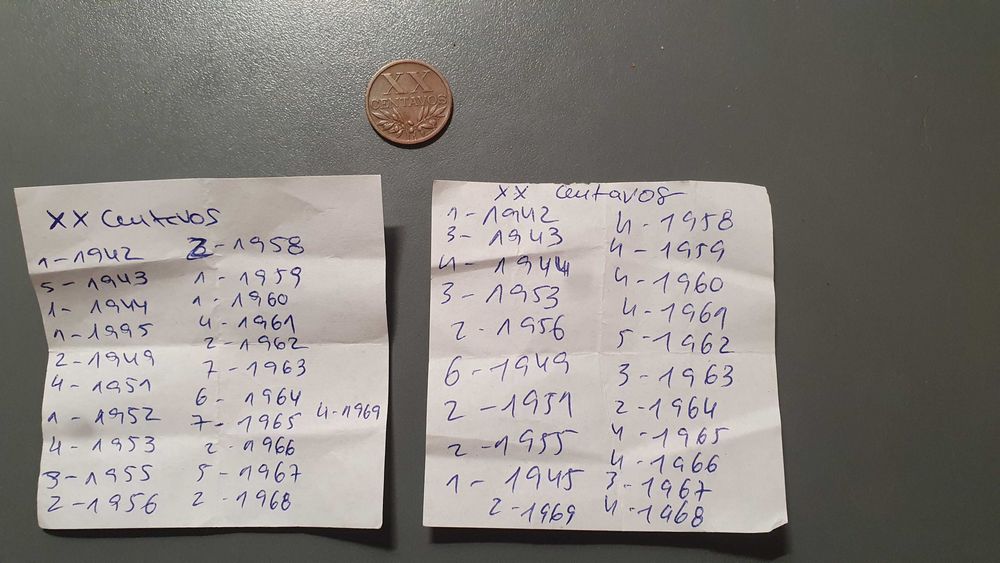 XX
CENTAVOS
XX Centavos
1-1942
5-1943
1-1944
1-1995
2-1949
4-1951
1-1952
4-1953
3-1955
2-1956
2-1958
1-1959
1-1960
4-1961
2-1962
7-1963
6-1964
7-1965
4-1969
2-1966
5-1967
2-1968
XX Centavos
1-1942
3-1943
4-1944
3-1953
2-1956
6-1949
2-1951
2-1955
1-1945
2-1969
4-1958
4-1959
4-1960
4-1961
5-1962
3-1963
2-1964
4-1965
4-1966
3-1967
4-1968